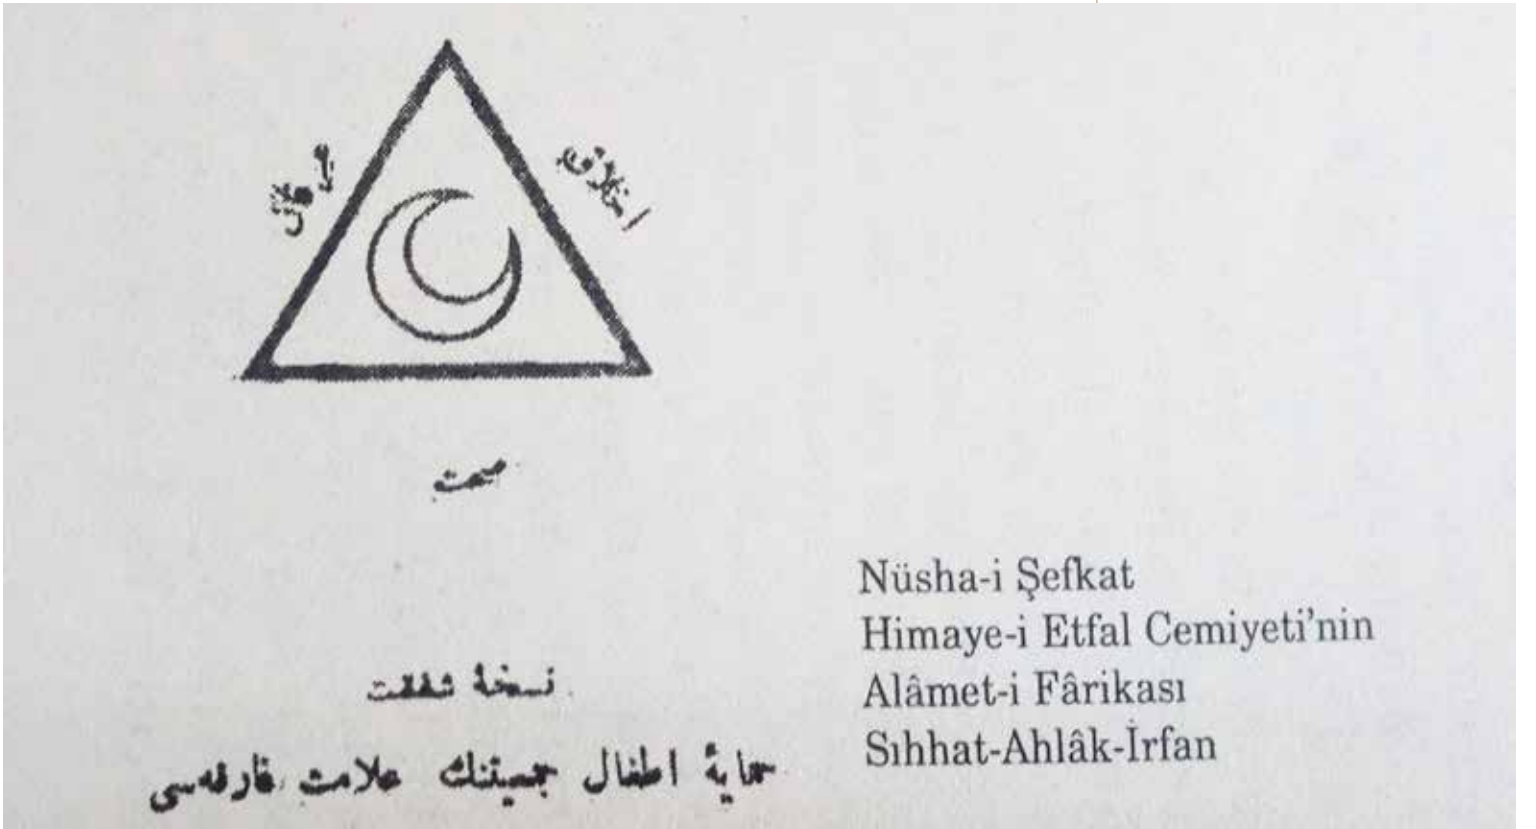 اخلاق
صحت
نسخهٔ شفقت
حمايهٔ اطفال جمعيتنك علامت فارقه‌سى
Nüsha-i Şefkat
Himaye-i Etfal Cemiyeti’nin
Alâmet-i Fârikası
Sıhhat-Ahlâk-İrfan